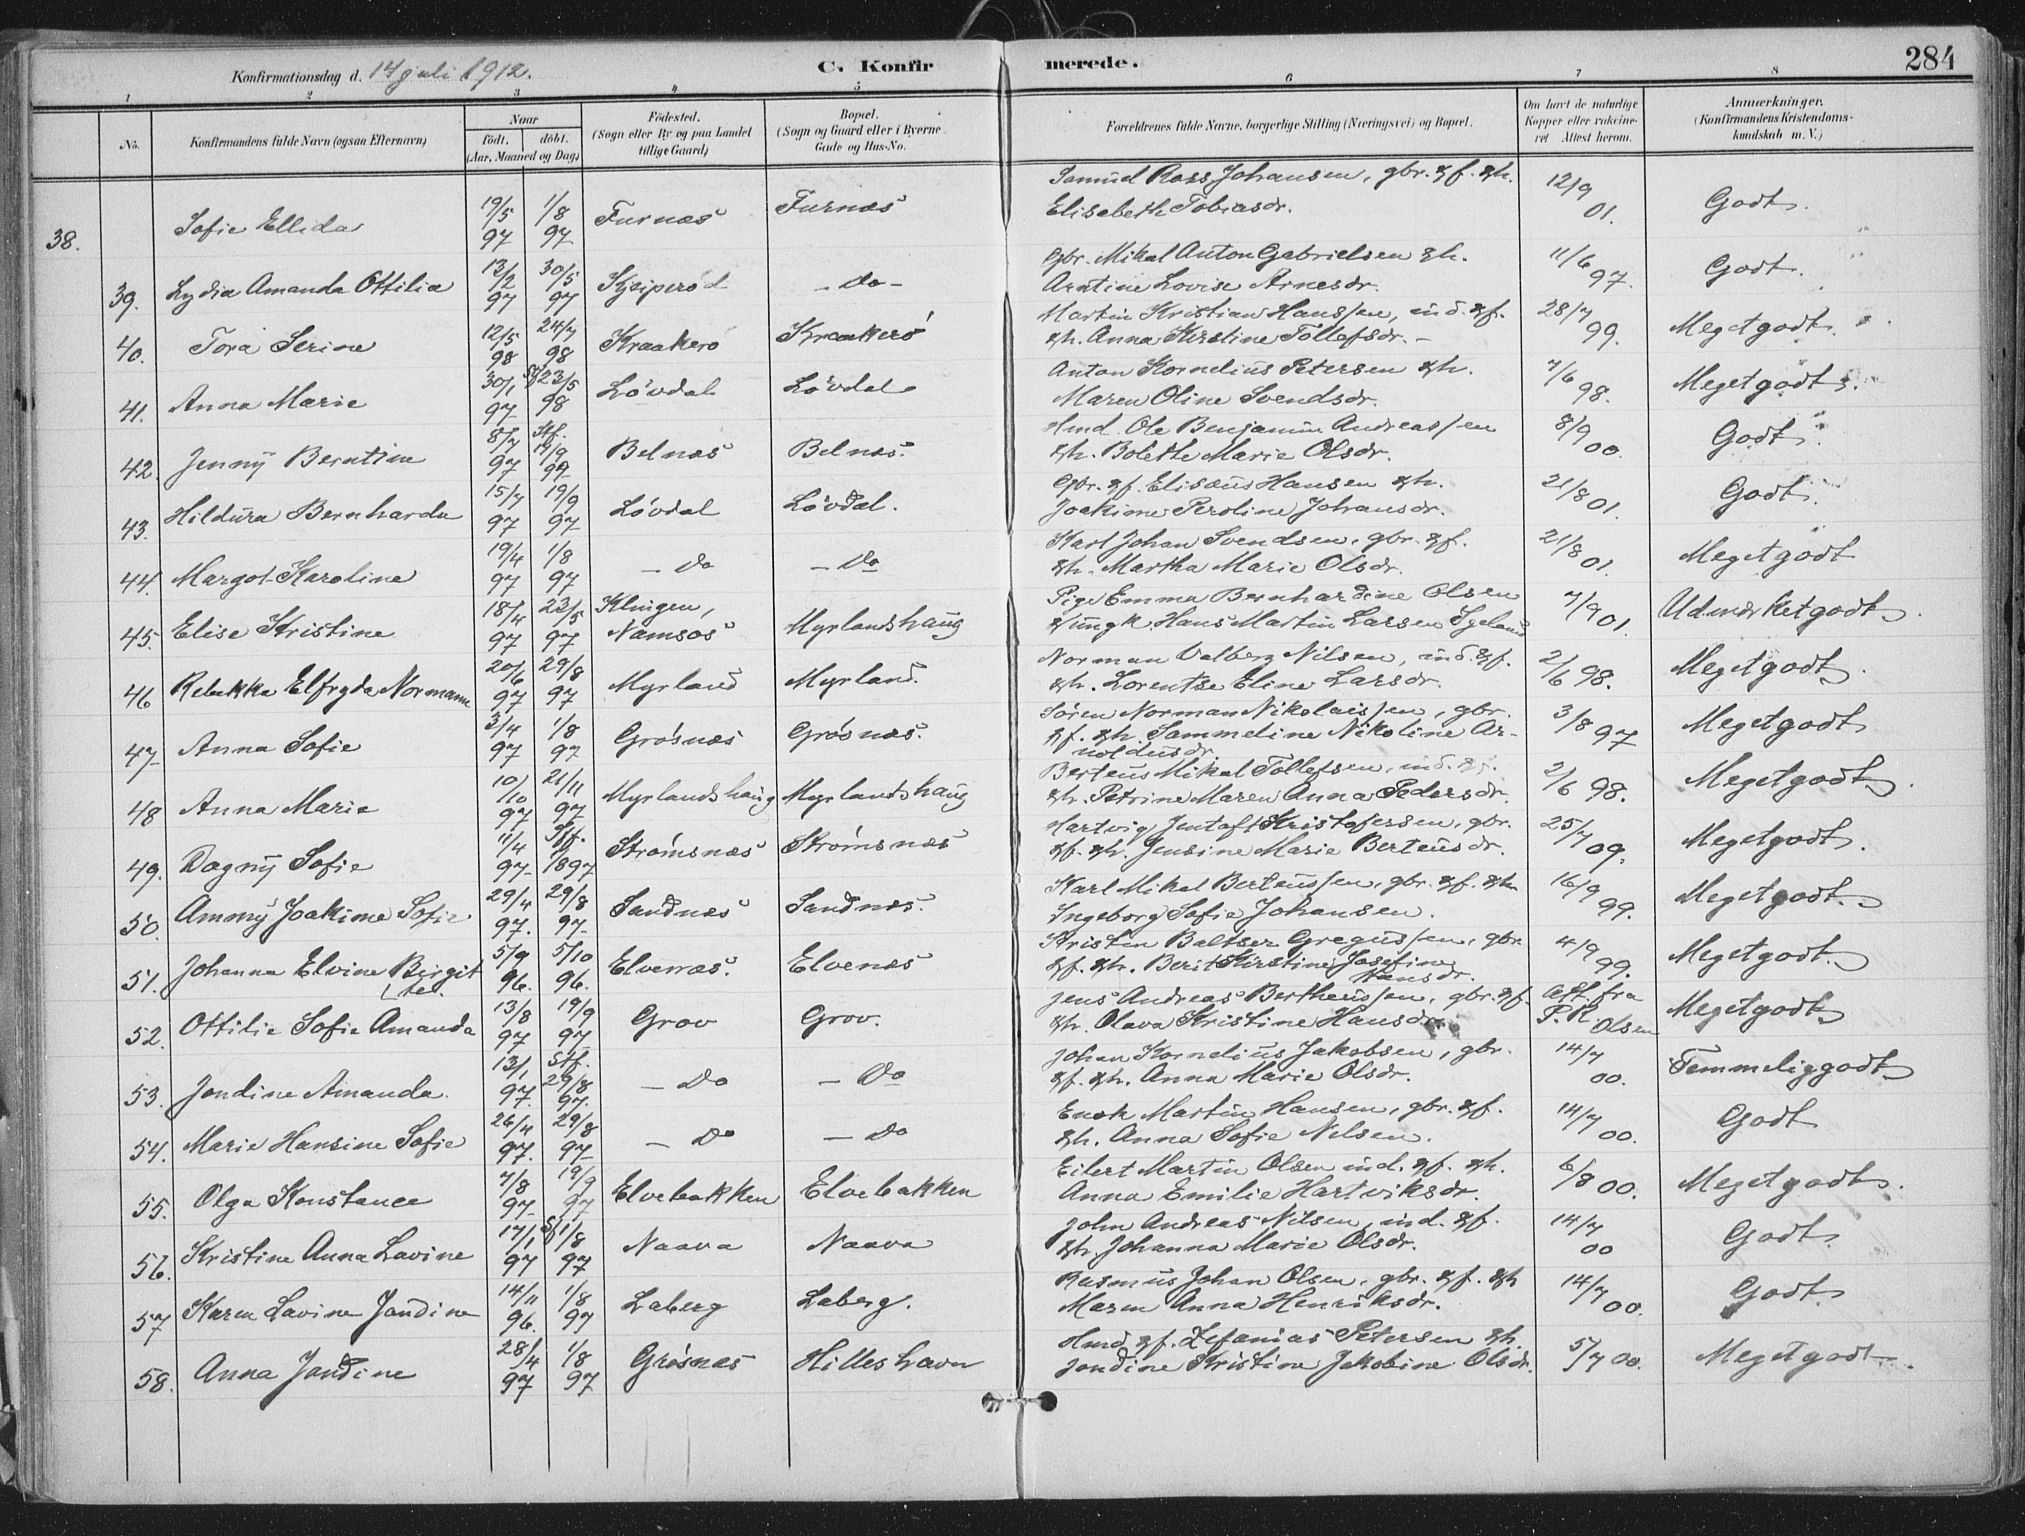 284
Konfirmationsdag d. 14 juli 1912.
C. Konfirmerede.
1 2 3 4 5 6 7 8
No.
Konfirmandens fulde Navn (ogsaa Efternavn)
Naar
født. døbt.
(Aar, Maaned og Dag)
Fødested.
(Sogn eller By og paa Landet
tillige Gaard)
Bopæl.
(Sogn og Gaard eller i Byerne
Gade og Hus-No.
Forældrenes fulde Navne, borgerlige Stilling (Næringsvei) og Bopæl.
Om havt de naturlige
Kopper eller vakcine-
ret Attest herom.
Anmærkninger.
(Konfirmandens Kristendoms-
kundskab m. V.)
38. Sofie Ellida 19/5 97 1/8 97 Furnæs Furnæs Samuel Ross Johansen, gbr. & f. & h.
Elisabeth Tobiasdr. 12/9 01. Godt.
39. Lydia Amanda Ottilia 13/2 97 30/5 97 Kjeiperød – Do – Gbr. Mikal Anton Gabrielsen & h.
Arntine Lovise Arnesdr. 11/6 97. Godt.
40. Tora Serine 12/5 98 24/7 98 Kraakerø Kraakerø Martin Kristian Hanssen, ind. & f.
& h. Anna Kirstine Tollefsdr. – 28/7 99. Megetgodt.
41. Anna Marie 30/1 97 23/5 98 Løvdal Løvdal Anton Kornelius Petersen & h.
Maren Oline Svendsdr. 7/6 98. Megetgodt.
42. Jenny Berntine 8/7 97 Stf. 19/9 99 Belnæs Belnæs. Hmd. Ole Benjamin Andreassen
& h. Bolette Marie Olsdr. 8/9 00. Godt.
43. Hildura Bernharda 15/7 97 19/9 97 Løvdal Løvdal. Gbr. & f. Elisæus Hansen & h.
Joakime Peroline Johansdr. 21/8 01. Godt.
44. Margot Karoline 19/4 97 1/8 97 – Do – Do Karl Johan Svendsen, gbr. & f.
& h. Martha Marie Olsdr. 21/8 01. Megetgodt
45. Elise Kristine 18/4 97 23/5 97 Klingen,
Namsos Myrlandshaug Pige Emma Bernhardine Olsen
& ungk. Hans Martin Larsen Igeland 7/9 01. Udmærketgodt.
46 Rebekka Elfryda Normann 20/6 97 29/8 97 Myrland Myrland. Norman Valberg Nilsen, ind. & f.
& h. Lorentse Eline Larsdr. 2/6 98. Megetgodt.
47 Anna Sofie 3/4 97 1/8 97 Grøsnæs Grøsnæs. Søren Norman Nikolaissen, gbr.
& f. & h. Sammeline Nikoline Ar-
noldusdr. 3/8 97 Megetgodt
48 Anna Marie 10/10 97 21/11 97 Myrlandshaug Myrlandshaug Berteus Mikal Tollefsen, ind. & f.
& h. Petrine Maren Anna Pedersdr. 2/6 98. Megetgodt.
49. Dagny Sofie 11/4 97 Stf. 1897 Strømsnæs Strømsnæs Hartvig Jentoft Kristofersen, gbr.
& f. & h. Jensine Marie Berteusdr. 25/7 09. Megetgodt.
50. Ammy Joakime Sofie 29/4 97. 29/8 97 Sandnæs Sandnæs. Karl Mikal Berteussen, gbr. & f. & h.
Ingeborg Sofie Johansen. 16/9 99. Megetgodt.
51. Johanna Elvine Birgit
5/9 96. 5/10 96. Elvenæs. Elvenæs Kristen Baltser Gregussen, gbr.
& f. & h. Berit Kirstine Josefine
Hansdr. 4/9 99. Megetgodt
52. Ottilie Sofie Amanda 13/8 97 19/9 97 Grov Grov. Jens Andreas Bertheussen, gbr. & f.
& h. Olava Kristine Hansdr. Att. fra
P. R. Olsen Megetgodt
53. Jondine Amanda. 13/1 97. Stf. 29/8 97. – Do – Do Johan Kornelius Jakobsen, gbr.
& f. & h. Anna Marie Olsdr. 14/7 00. Temmeliggodt
54. Marie Hansine Sofie 26/4 97. 29/8 97 – Do – Do Enok Martin Hansen, gbr. & f.
& h. Anna Sofie Nilsen. 14/7 00. Godt
55. Olga Konstance 7/8 97 19/9 97 Elvebakken Elvebakken Eilert Martin Olsen ind. & f. & h.
Anna Emilie Hartviksdr. 6/8 00. Megetgodt.
56. Kristine Anna Lavine 17/1 97 Sf 1/8 97 Naava Naava John Andreas Nilsen, ind. & f.
& h. Johanna Marie Olsdr. 14/7 00 Godt.
57 Karen Lavine Jondine 14/11 96. 1/8 97 Laberg Laberg. Rasmus Johan Olsen, gbr. & f. & h
Maren Anna Henriksdr. 14/7 00. Godt.
58. Anna Jondine 28/4 97 1/8 97 Grøsnæs Hilleshavn Hmd. & f. Zefanias Petersen & h.
Jondine Kristine Jakobine Olsdr. 5/7 00. Megetgodt.